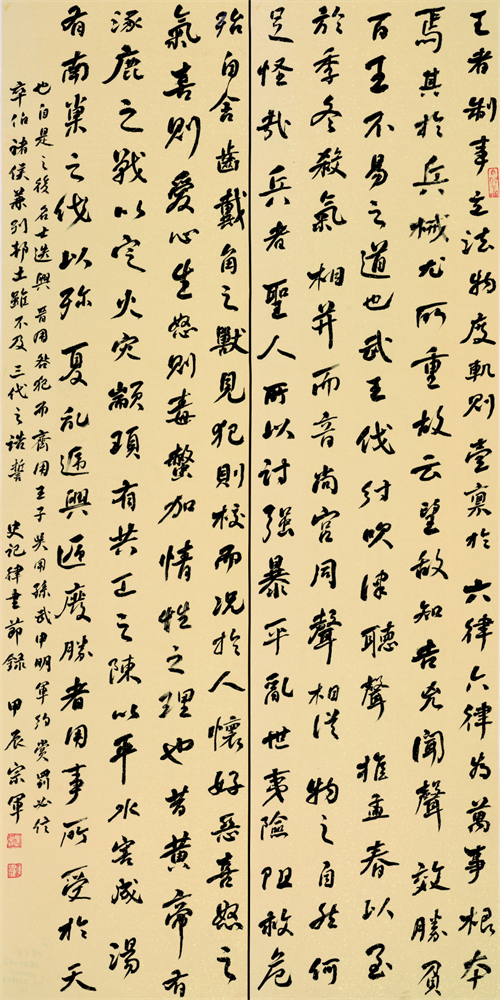 王者制事立法物度軌則壹稟於六律六律為萬事根本
焉其於兵械尤所重故云望敵知吉凶聞聲效勝負
百王不易之道也武王伐紂吹律聽聲推孟春以至
於季冬殺氣相并而音尚宮同聲相從物之自然何
足怪哉兵者聖人所以討强暴平亂世夷險阻救危
殆自含齒戴角之獸見犯則校而況於人懷好惡喜怒之
氣喜則愛心生怒則毒螫加情性之理也昔黃帝有
涿鹿之戰以定火灾顓頊有共工之陳以平水害成湯
有南巢之伐以殄夏亂遞興遞廢勝者用事所受於天
也自是之後名士迭興晉用咎犯而齊用王子吳用孫武申明軍約賞罰必信
卒伯諸侯兼列邦土雖不及三代之誥誓 史記律書節錄 甲辰宗軍